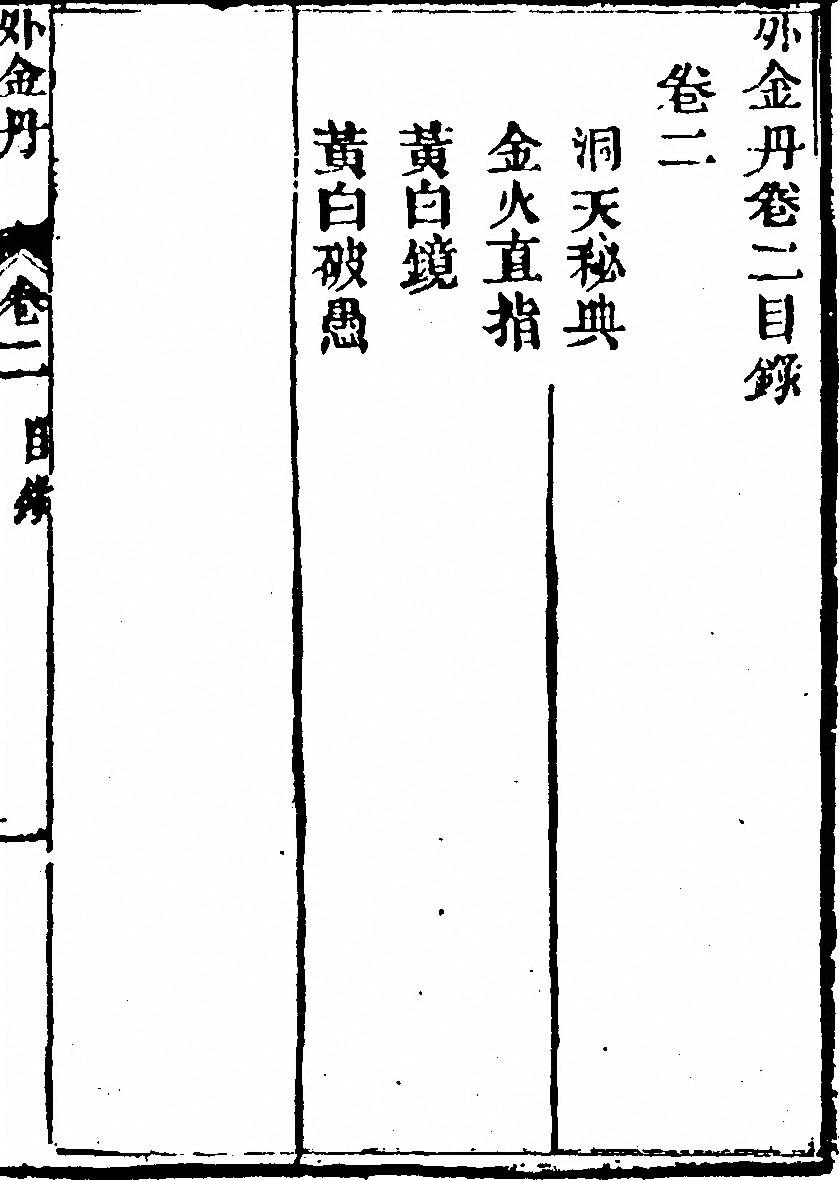 外金丹卷二目錄
卷二
洞天秘典
金火直指
黃白鏡
黃白破愚
外金丹
卷二
目錄